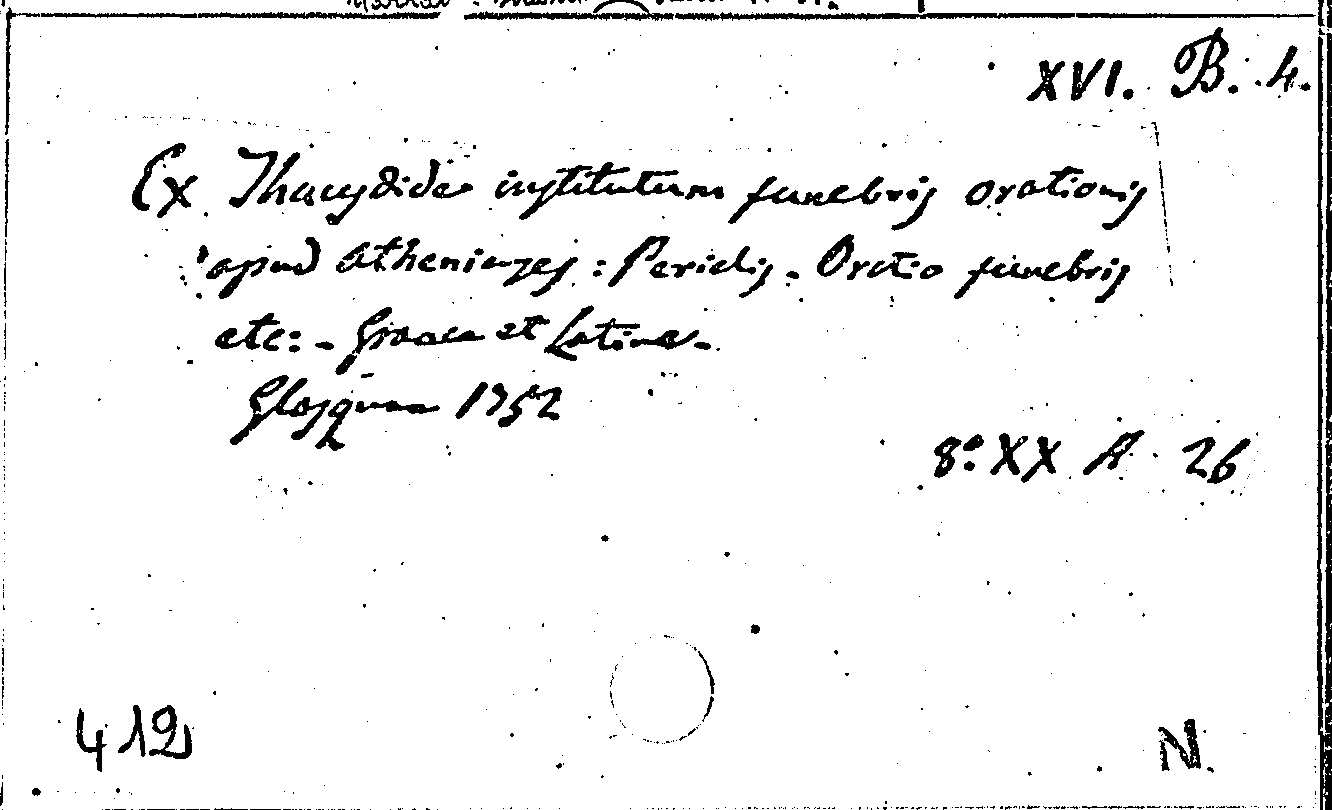 XVI. B. 4.
Ex Thucydide institutum funebris orationis
apud Athenienses : Periclis. Oratio funebris
etc: - Graece et Latine -
Glasquae 1752
8º XX A 26
412
N.